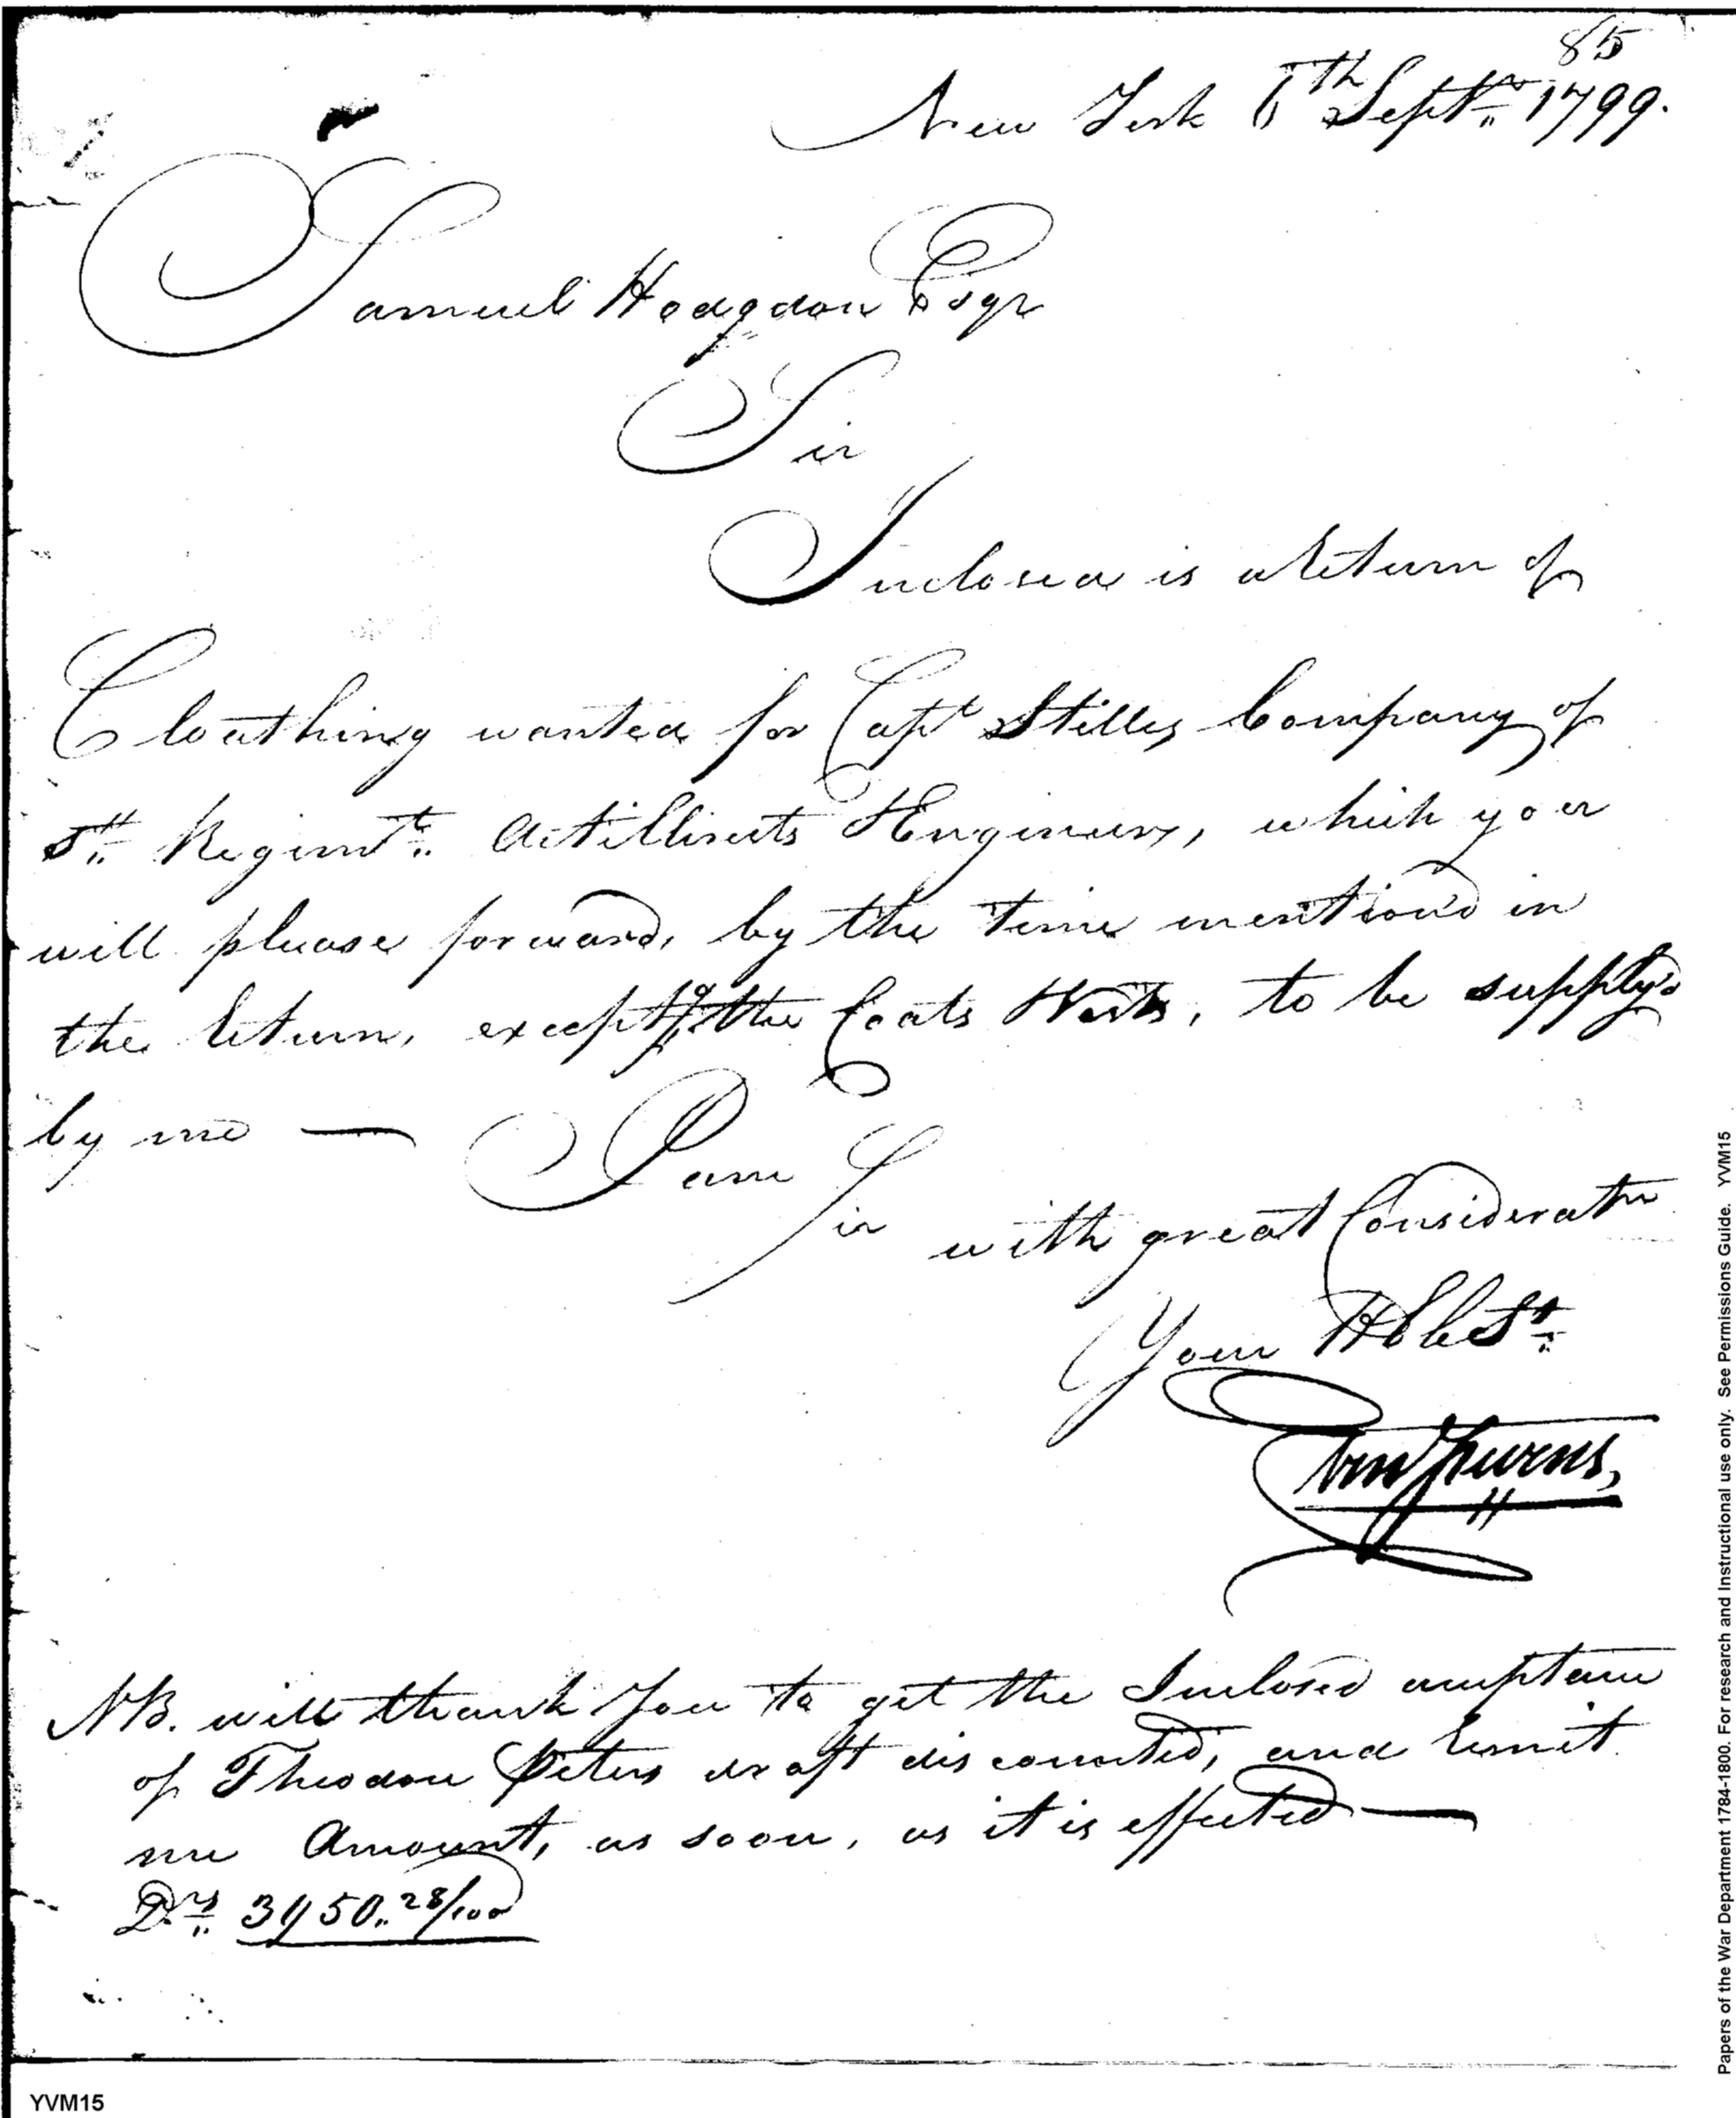 85
New York 6th Septr 1799.
Samuel Hodgdon Esqr
Sir
Inclosed is a Return of
Cloathing wanted for Capt Stilles Company of
Regimt Artillirists & Engineers, which you
will please forward, by the time mention'd in
the Return, except the Coats & Vests, to be supply'd
by me —
I am
Sir
with great Consideratn
Your Hble St
NB. will thank you to get the Inclosed acceptance
of Theodore Peters draft discounted, and remit
me Amount, as soon, as it is effected —
Drs 3950.. 28/100
YVM15
Papers of the War Department 1784-1800. For research and Instructional use only. See Permissions Guide. YVM15